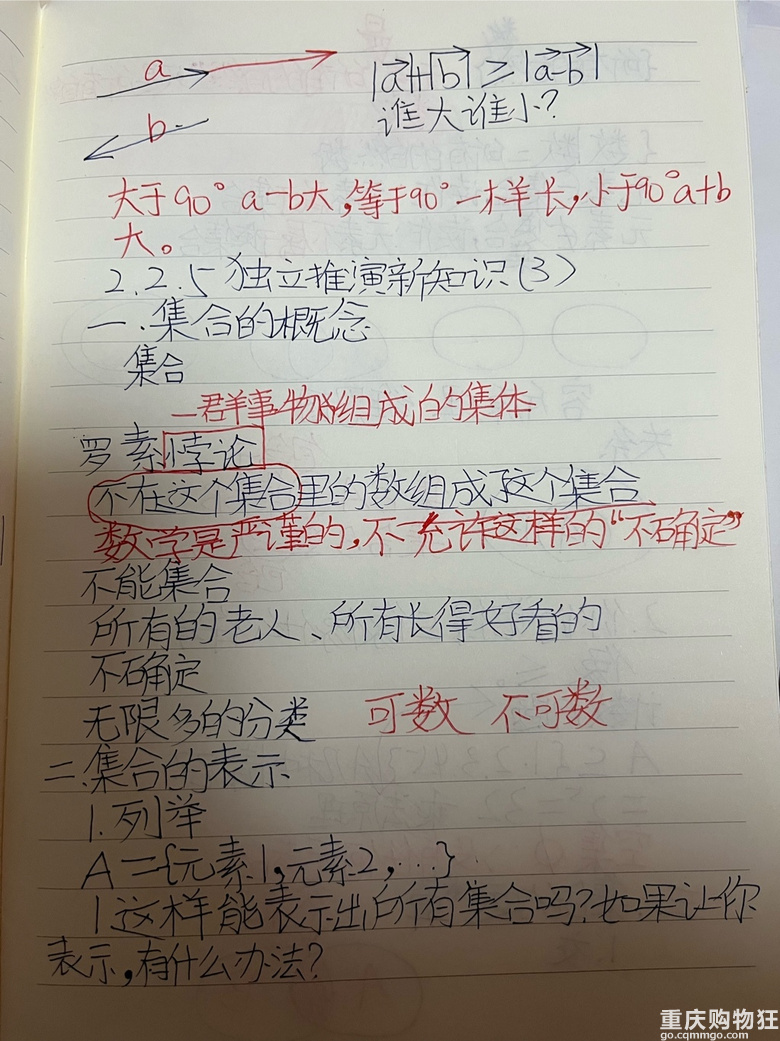 a
|a|+|b| ≥ |a-b|
谁大谁小?
b
大于90° a-b大,等于90°一样长,小于90°a+b
大。
2.2.5 独立推演新知识(3)
一.集合的概念
集合
一群事物组成的集体
罗素悖论
不在这个集合里的数组成了这个集合
数学是严谨的,不允许这样的“不确定”
不能集合
所有的老人、所有长得好看的
不确定
无限多的分类 可数 不可数
二.集合的表示
1.列举
A={元素1,元素2,...}
1这样能表示出所有集合吗?如果让你
表示,有什么办法?
重庆购物狂
go.cqmmgo.com